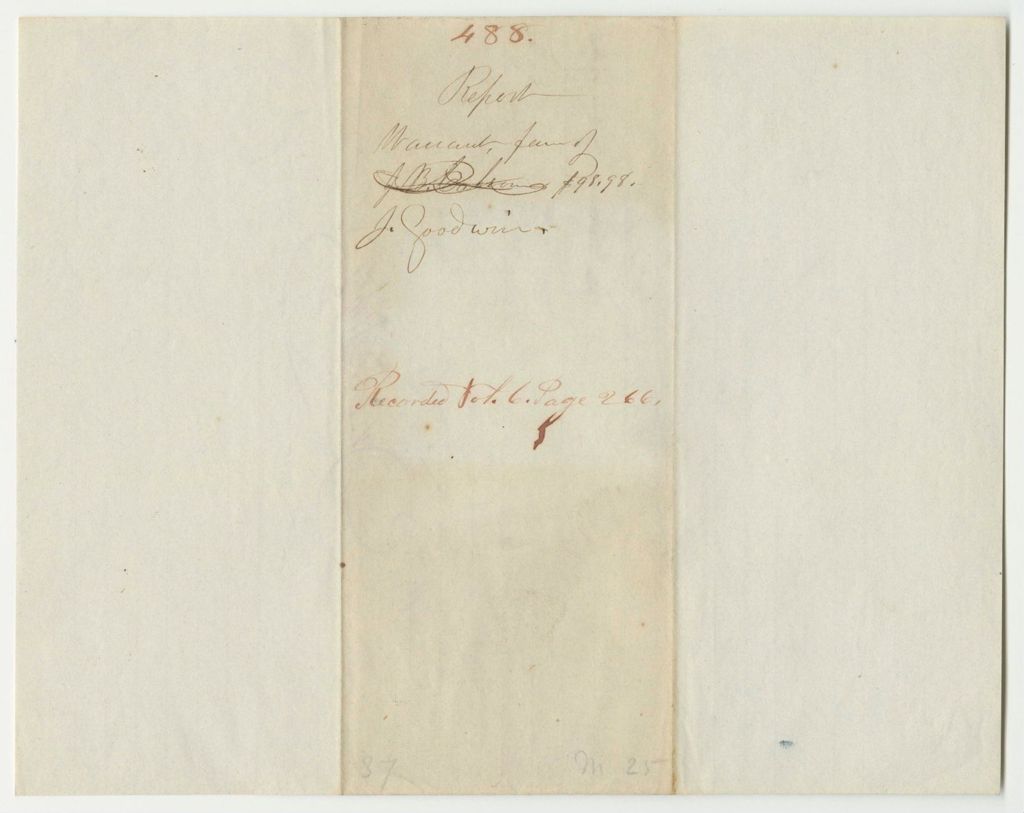 488.
Report
Warrant, favr of
$98.98.
J. Goodwin
Recorded Vol. 6. Page 266.
37 M 25